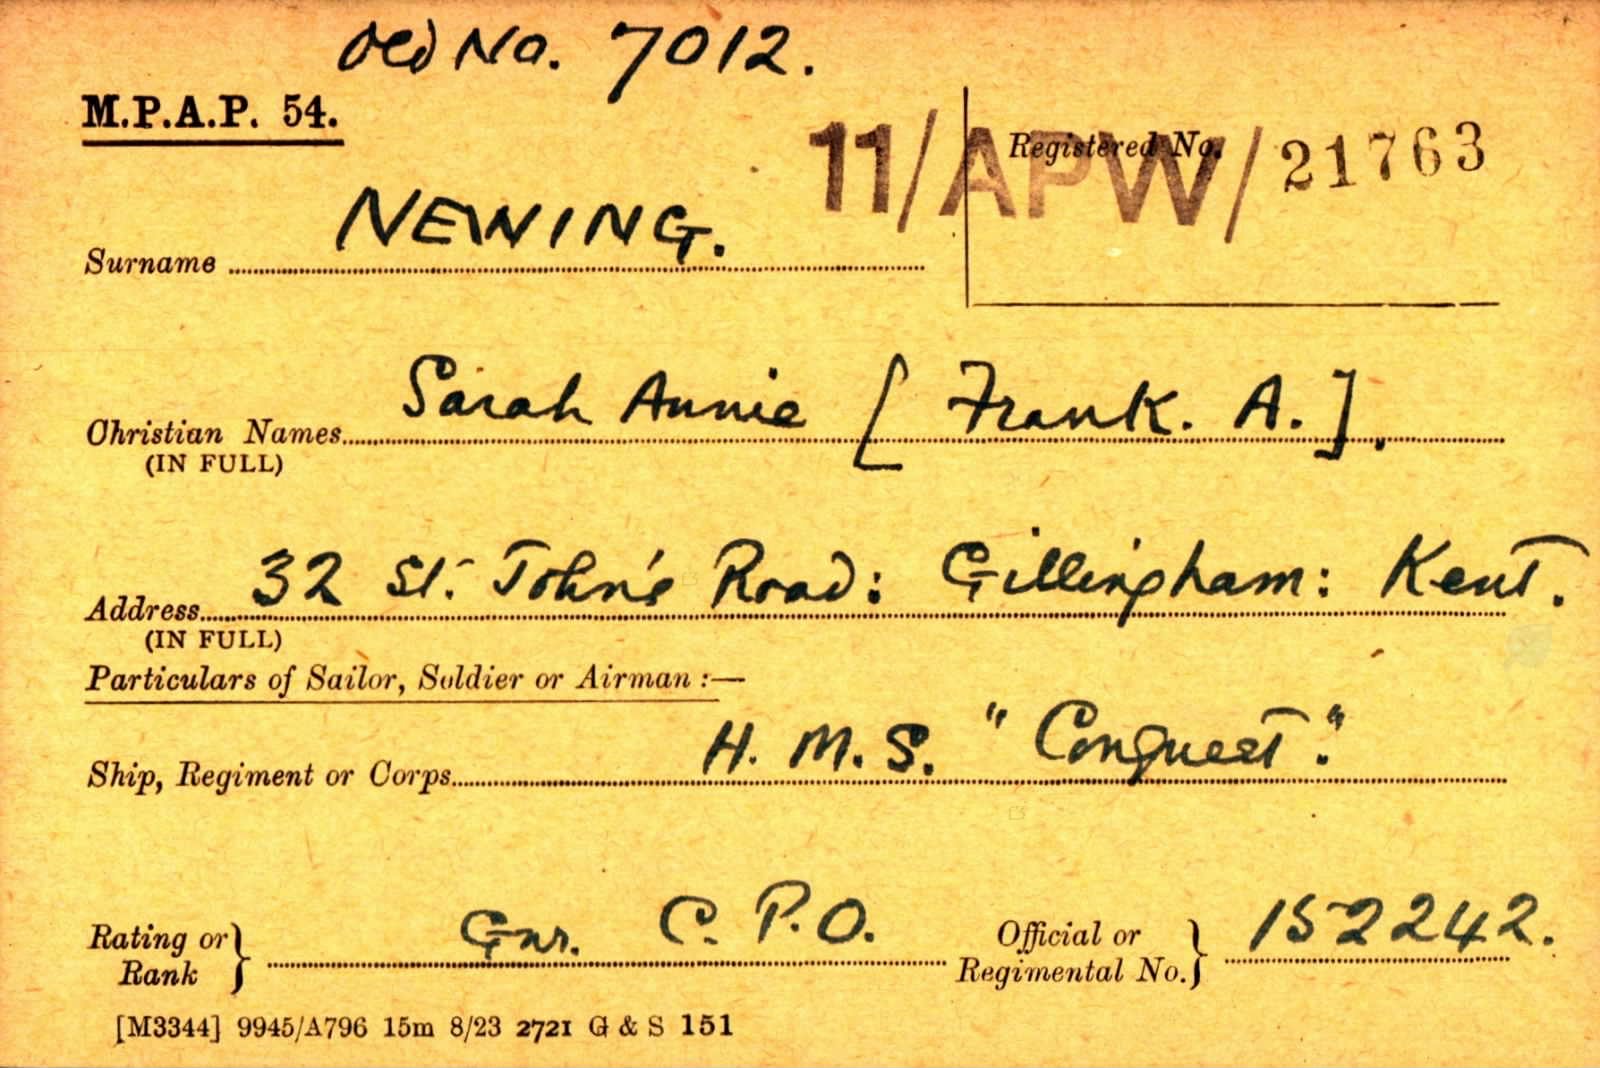 Old No. 7012.
M.P.A.P. 54.
Registered No.
11/APW/21763
Surname NEWING.
Christian Names Sarah Annie [Frank. A.].
(IN FULL)
Address 32 St. John's Road: Gillingham: Kent.
(IN FULL)
Particulars of Sailor, Soldier or Airman :—
Ship, Regiment or Corps H. M. S. "Conquest".
Rating or Rank } Gnr. C. P.O. Official or Regimental No. } 152242.
[M3344] 9945/A796 15m 8/23 2721 G & S 151